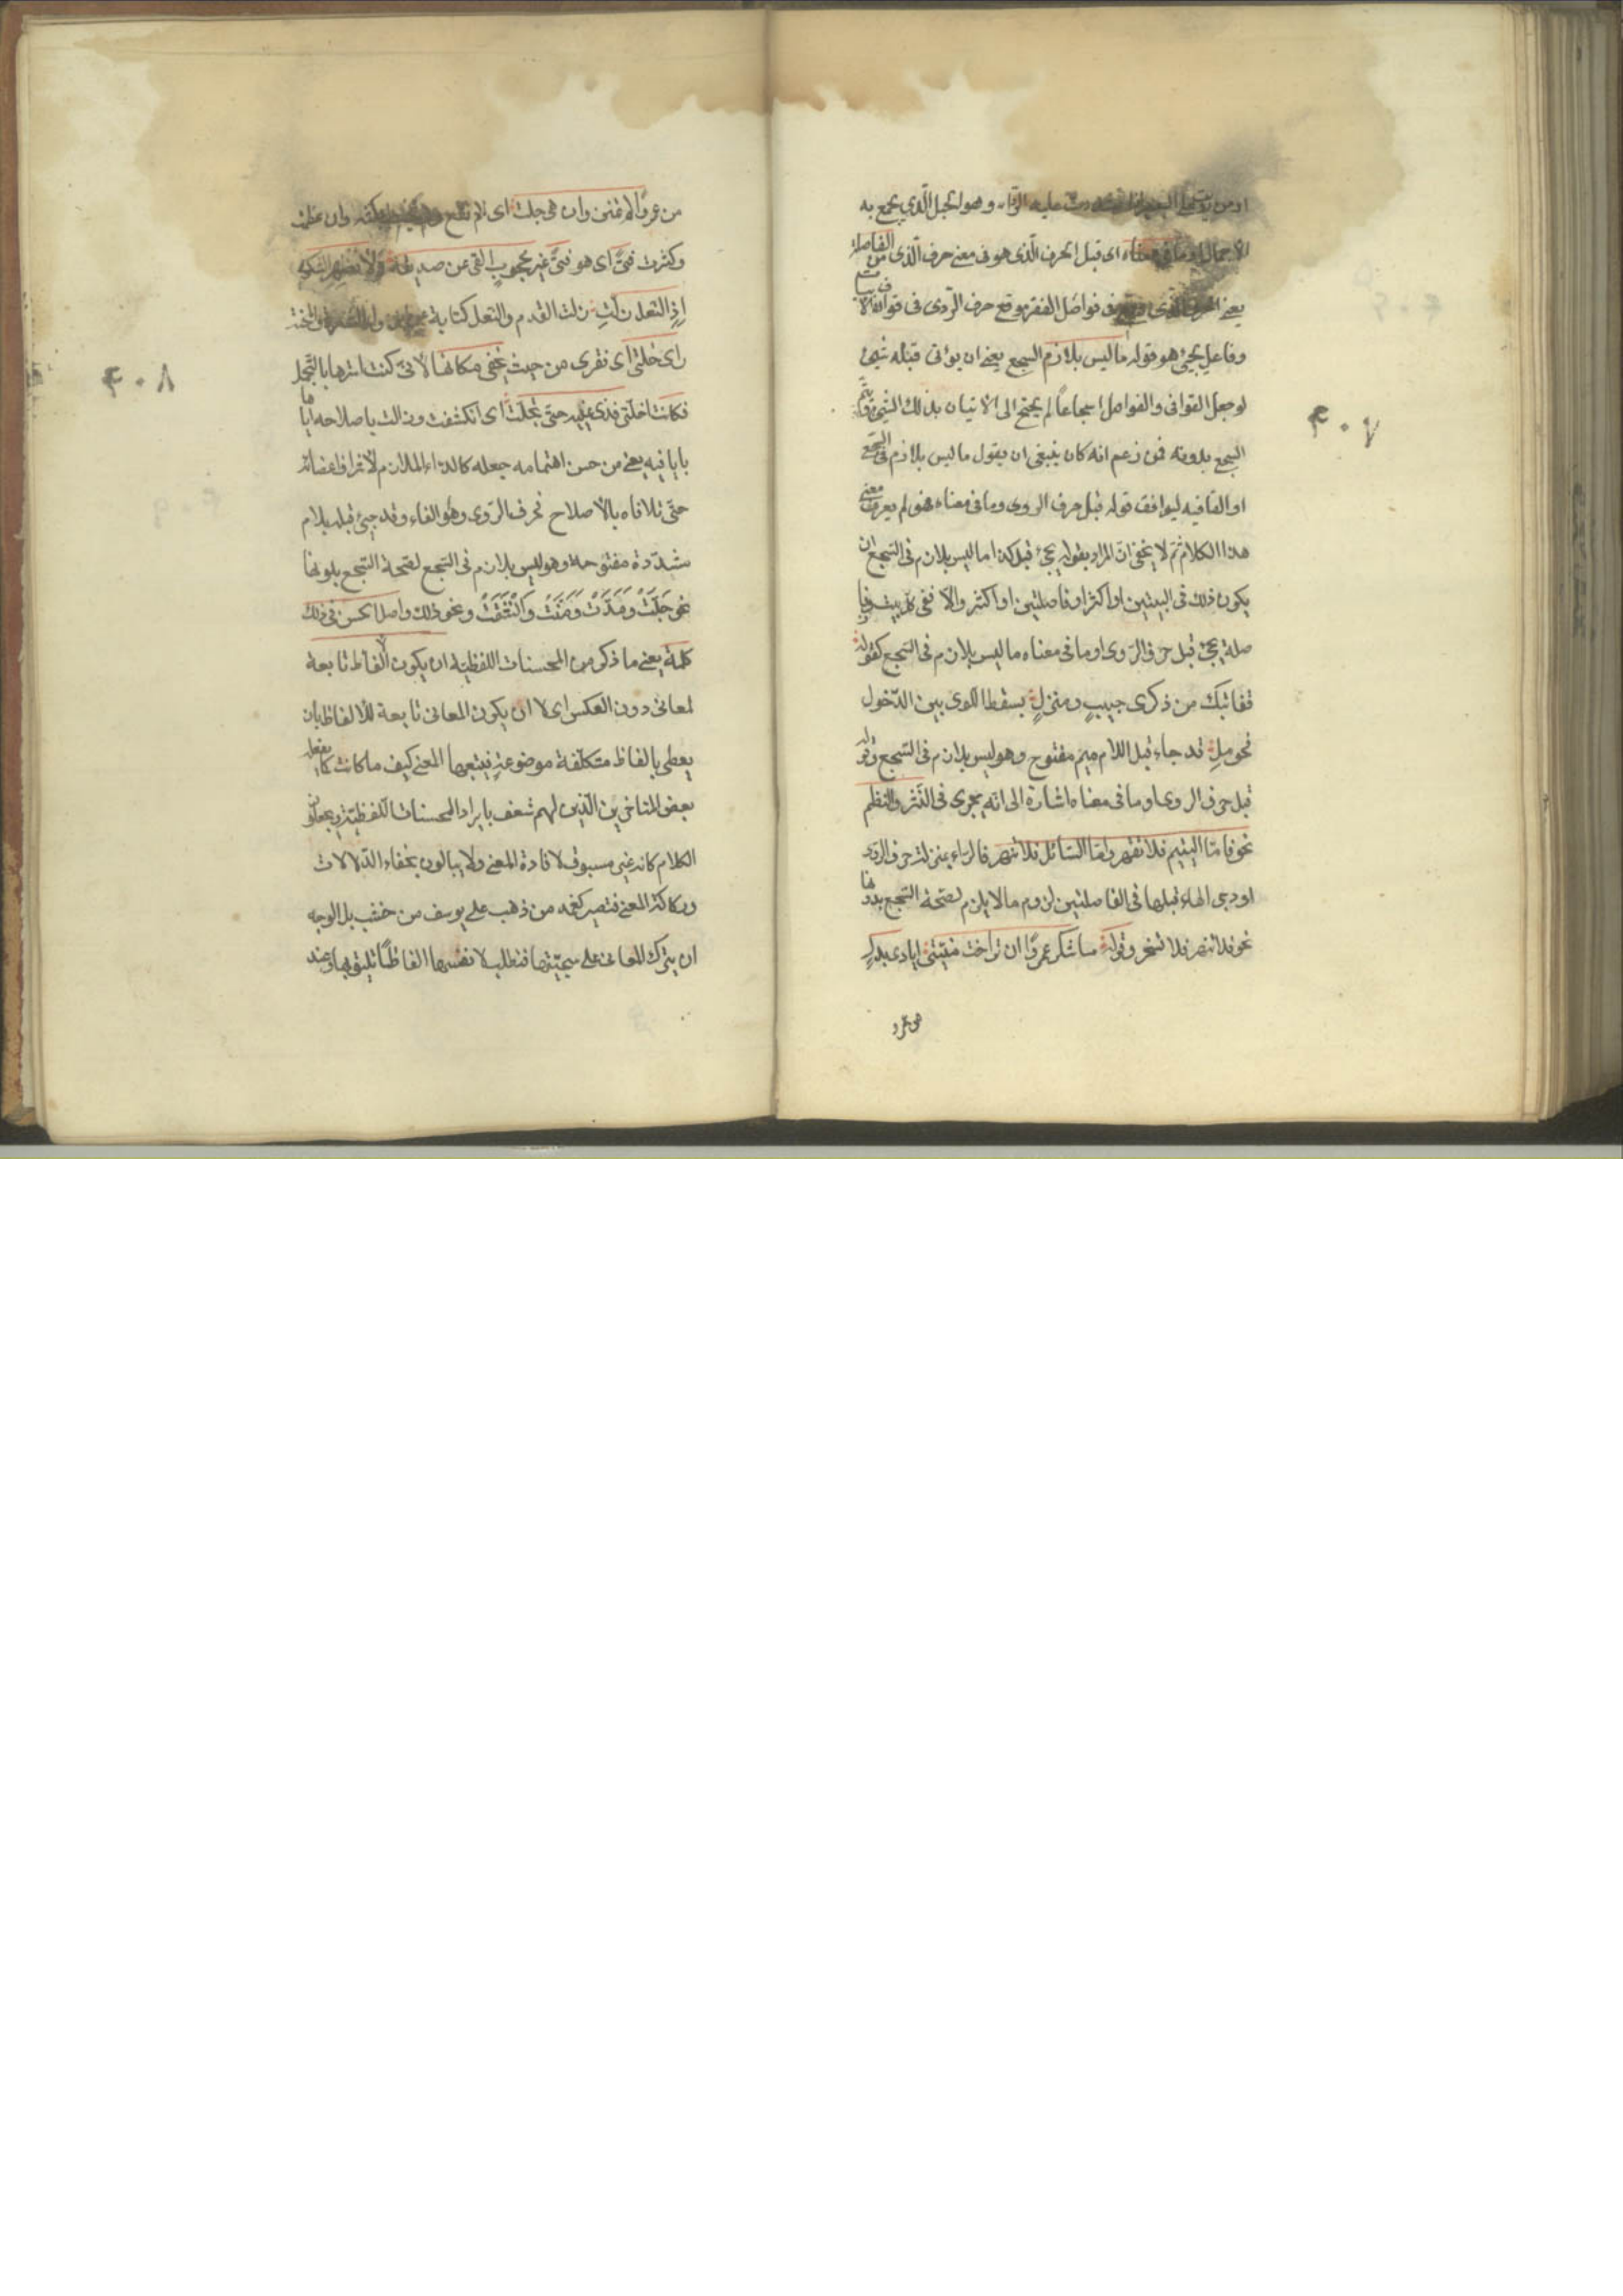 عليه الرّواء وهو الحبل الّذي يجمع به
الاحمال او ما فى معناه اى قبل الحرف الّذى هو فى معنى حرف الّذى من الفاصلة
يعنى الحرف الّذى وقع فى فواصل الفقر موقع حرف الرّوى فى قوافى الابيات
وفاعل يجئ هو قوله ما ليس بلازم السجع يعنى ان يؤتى قبله شئ
لو جعل القوافى والفواصل اسجاعاً لم يحتج الى الاتيان بذلك الشئ ويتم
السجع بدونه فمن زعم انه كان ينبغى ان يقول ما ليس بلازم فى السجع
او القافيه ليوافق قوله قبل حرف الروى وما فى معناه فهو لم يعرف معنى
هذا الكلام ثم لا يخفى انّ المراد بقوله يجئ قبل كذا ما ليس بلازم فى السّجع ان
يكون ذلك فى البيتين او اكثر او فاصلتين او اكثر والا ففى كل بيت وفا
صلة يجئ قبل حرف الرّوى او ما فى معناه ما ليس بلازم فى السّجع كقوله
قفا نبك من ذكرى حبيبٍ ومنزلِ بسقط اللّوى بين الدّخول
فحوملِ قد جاء قبل اللام ميم مفتوح وهو ليس بلازم فى السّجع وقوله
قبل حرف الروى او ما فى معناه اشارة الى انّه يجرى فى النّثر والنّظم
نحو فامّا اليتيم فلا تقهر وامّا السّائل فلا تنهر فالرّاء بمنزلة حرف الرّوى
او وجئ الهاء قبلها فى الفاصلتين لزوم ما لا يلزم لصحّة السّجع بدونها
نحو فلا تنهر فلا تسخر وقوله ساشكر عمروًا ان تراخت منيّتى ايادى بدل
من عمرو
٤٠٧
من عمروًا لم تمنن وان هى جلت اى لم تقطع وان عظمت
وكثرت فتىً اى هو فتىً غير محجوب الغنى عن صديقه ولا مظهر الشكوى
اذِ النّعل زلّتِ زلت القدم والنّعل كناية
راى خلّتى اى فقرى من حيث يخفى مكانها لانّى كنت استرها بالتّجمّل
فكانت اى خلّتى قذى عينيه حتّى تجلّت اى انكشفت وزالت باصلاحه ايّا
ها باياديه يعنى من حسن اهتمامه جعله كالداء الملازم لاشراف اعضائه
حتّى تلافاه بالاصلاح فحرف الرّوى وهو التاء وقد جيئ قبله بلام
مشدّدة مفتوحة وهو ليس بلازم فى السّجع لصّحة السّجع بدونها
نحو جَلّتْ وَمَدّتْ وَمَنّتْ وَانْشَقّتْ ونحو ذلك واصل الحسن فى ذلك
كلّه يعنى ما ذكر من المحسنات اللفظيّة ان يكون الالفاظ تابعة
لمعانى دون العكس اى لا ان يكون المعانى تابعة للالفاظ بان
يعطى بالفاظ متكلّفة موضوعة فيتبعها المعنى كيف ما كانت كما يفعله
بعض المتاخّرين الّذين لهم شعف بايراد المحسنات اللّفظيّة ويجعلون
الكلام كانه غير مسبوق لافادة المعنى ولا يبالون بخفاء الدّلالات
وركاكة المعنى فتصير كغمد من ذهب على سيف من خشب بل الوجه
ان يترك المعانى على سجيّتها فتطلب لانفسها الفاظًا تليق بها وعند
٤٠٨